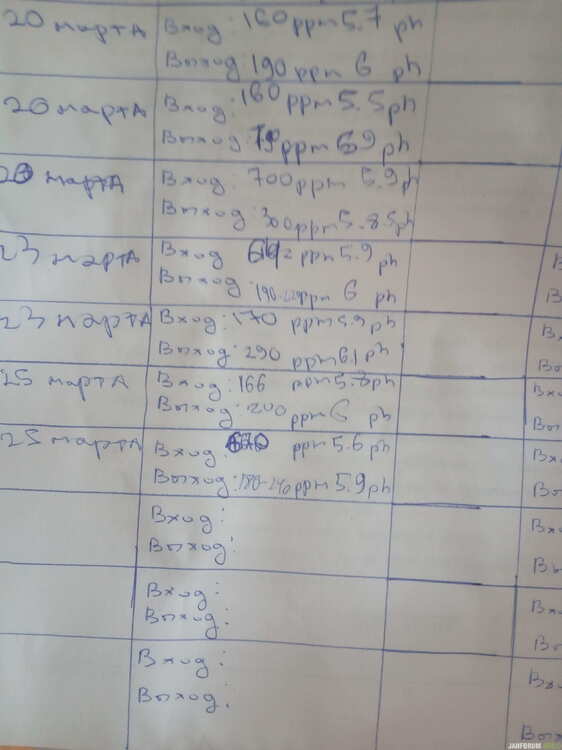 20 марта Вход: 160 ppm 5.7 ph
Выход 190 ppm 6 ph
20 марта Вход: 160 ppm 5.5 ph
Выход: ppm ph
марта Вход: 700 ppm 5.9 ph
Выход: 300 ppm 5.85 ph
23 марта Вход ppm 5.9 ph
Выход: ppm 6 ph
23 марта Вход: 170 ppm ph
Выход: 290 ppm 6.1 ph
25 марта Вход: 166 ppm 5.8 ph
Выход: 200 ppm 6 ph
25 марта Вход: ppm 5.6 ph
Выход: 180-240 ppm 5.9 ph
Вход:
Выход:
Вход:
Выход:
Вход:
Выход: